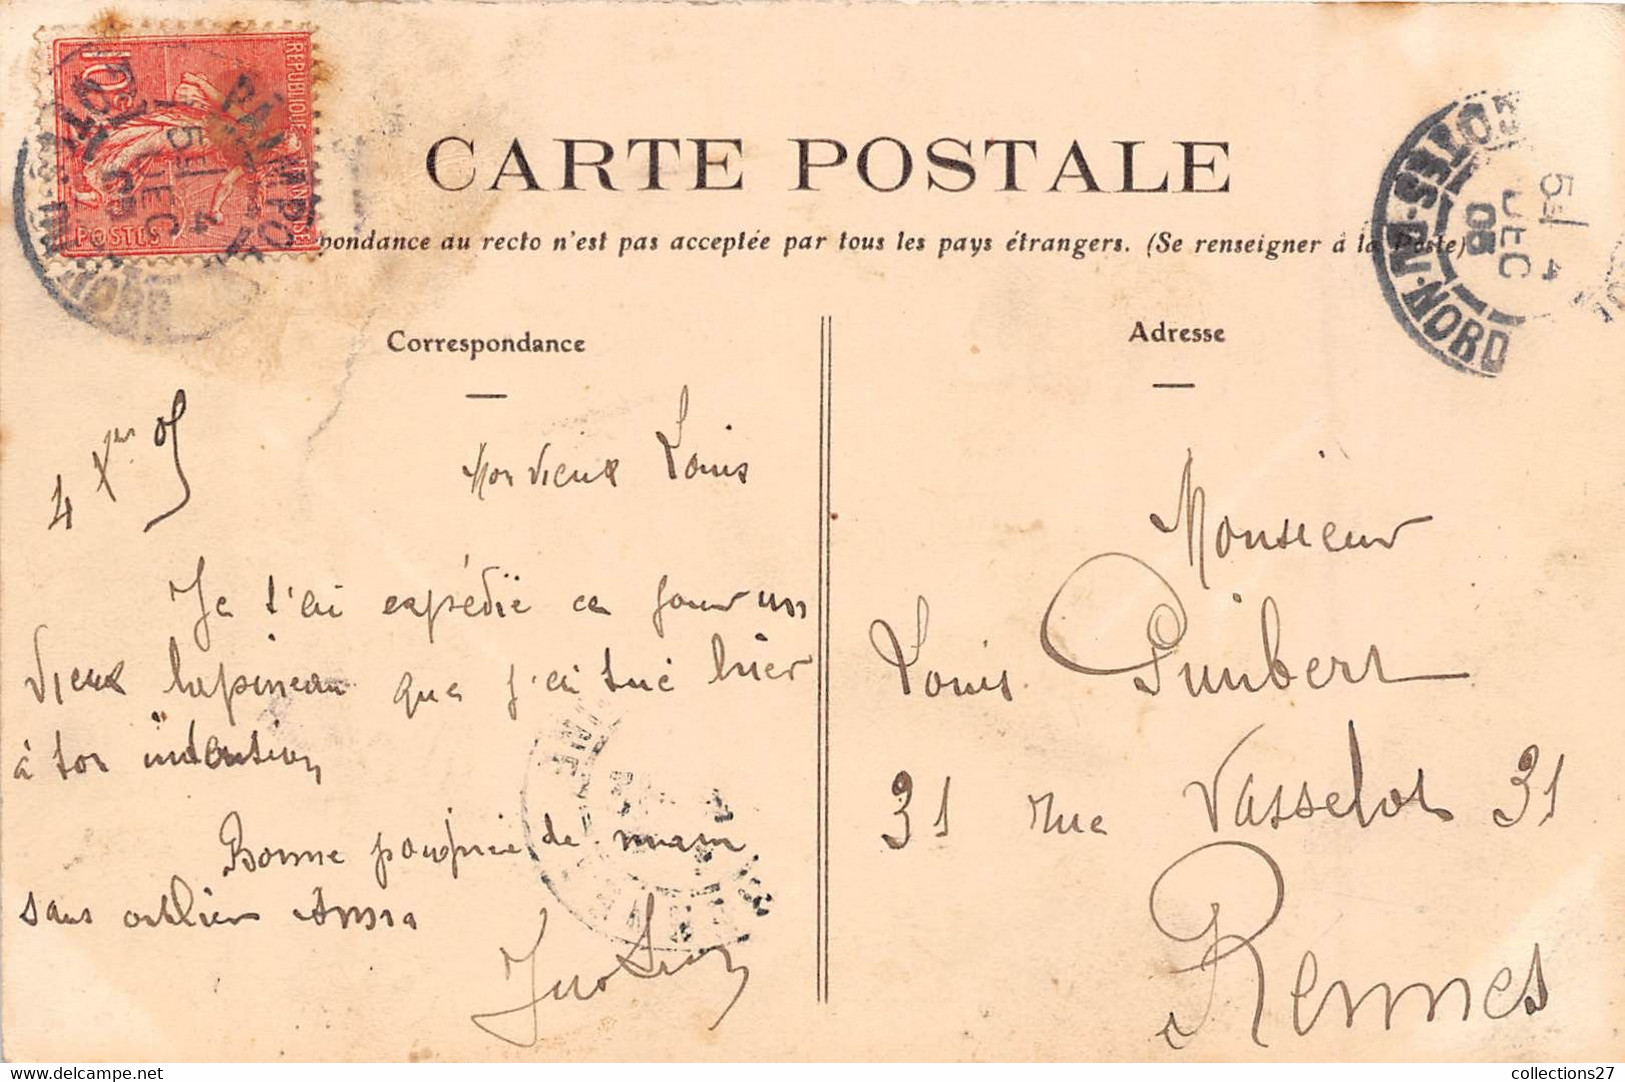 REPUBLIQUE FRANÇAISE
10c
POSTES
PAIMPOL
5E/ 4
DEC
05
CÔTES-DU-NORD
CARTE POSTALE
pondance au recto n'est pas acceptée par tous les pays étrangers. (Se renseigner à la Poste)
CÔTES-DU-NORD
5E/ 4
DEC
05
Correspondance
4 Xbre 05
Mon vieux Louis
Je t'ai expédié ce jour un
vieux lapineau que j'ai tué hier
à ton intention
Bonne poignée de main
sans oublier Anna
Adresse
Monsieur
Louis Guibert
31 rue Vasselot 31
Rennes
collections27